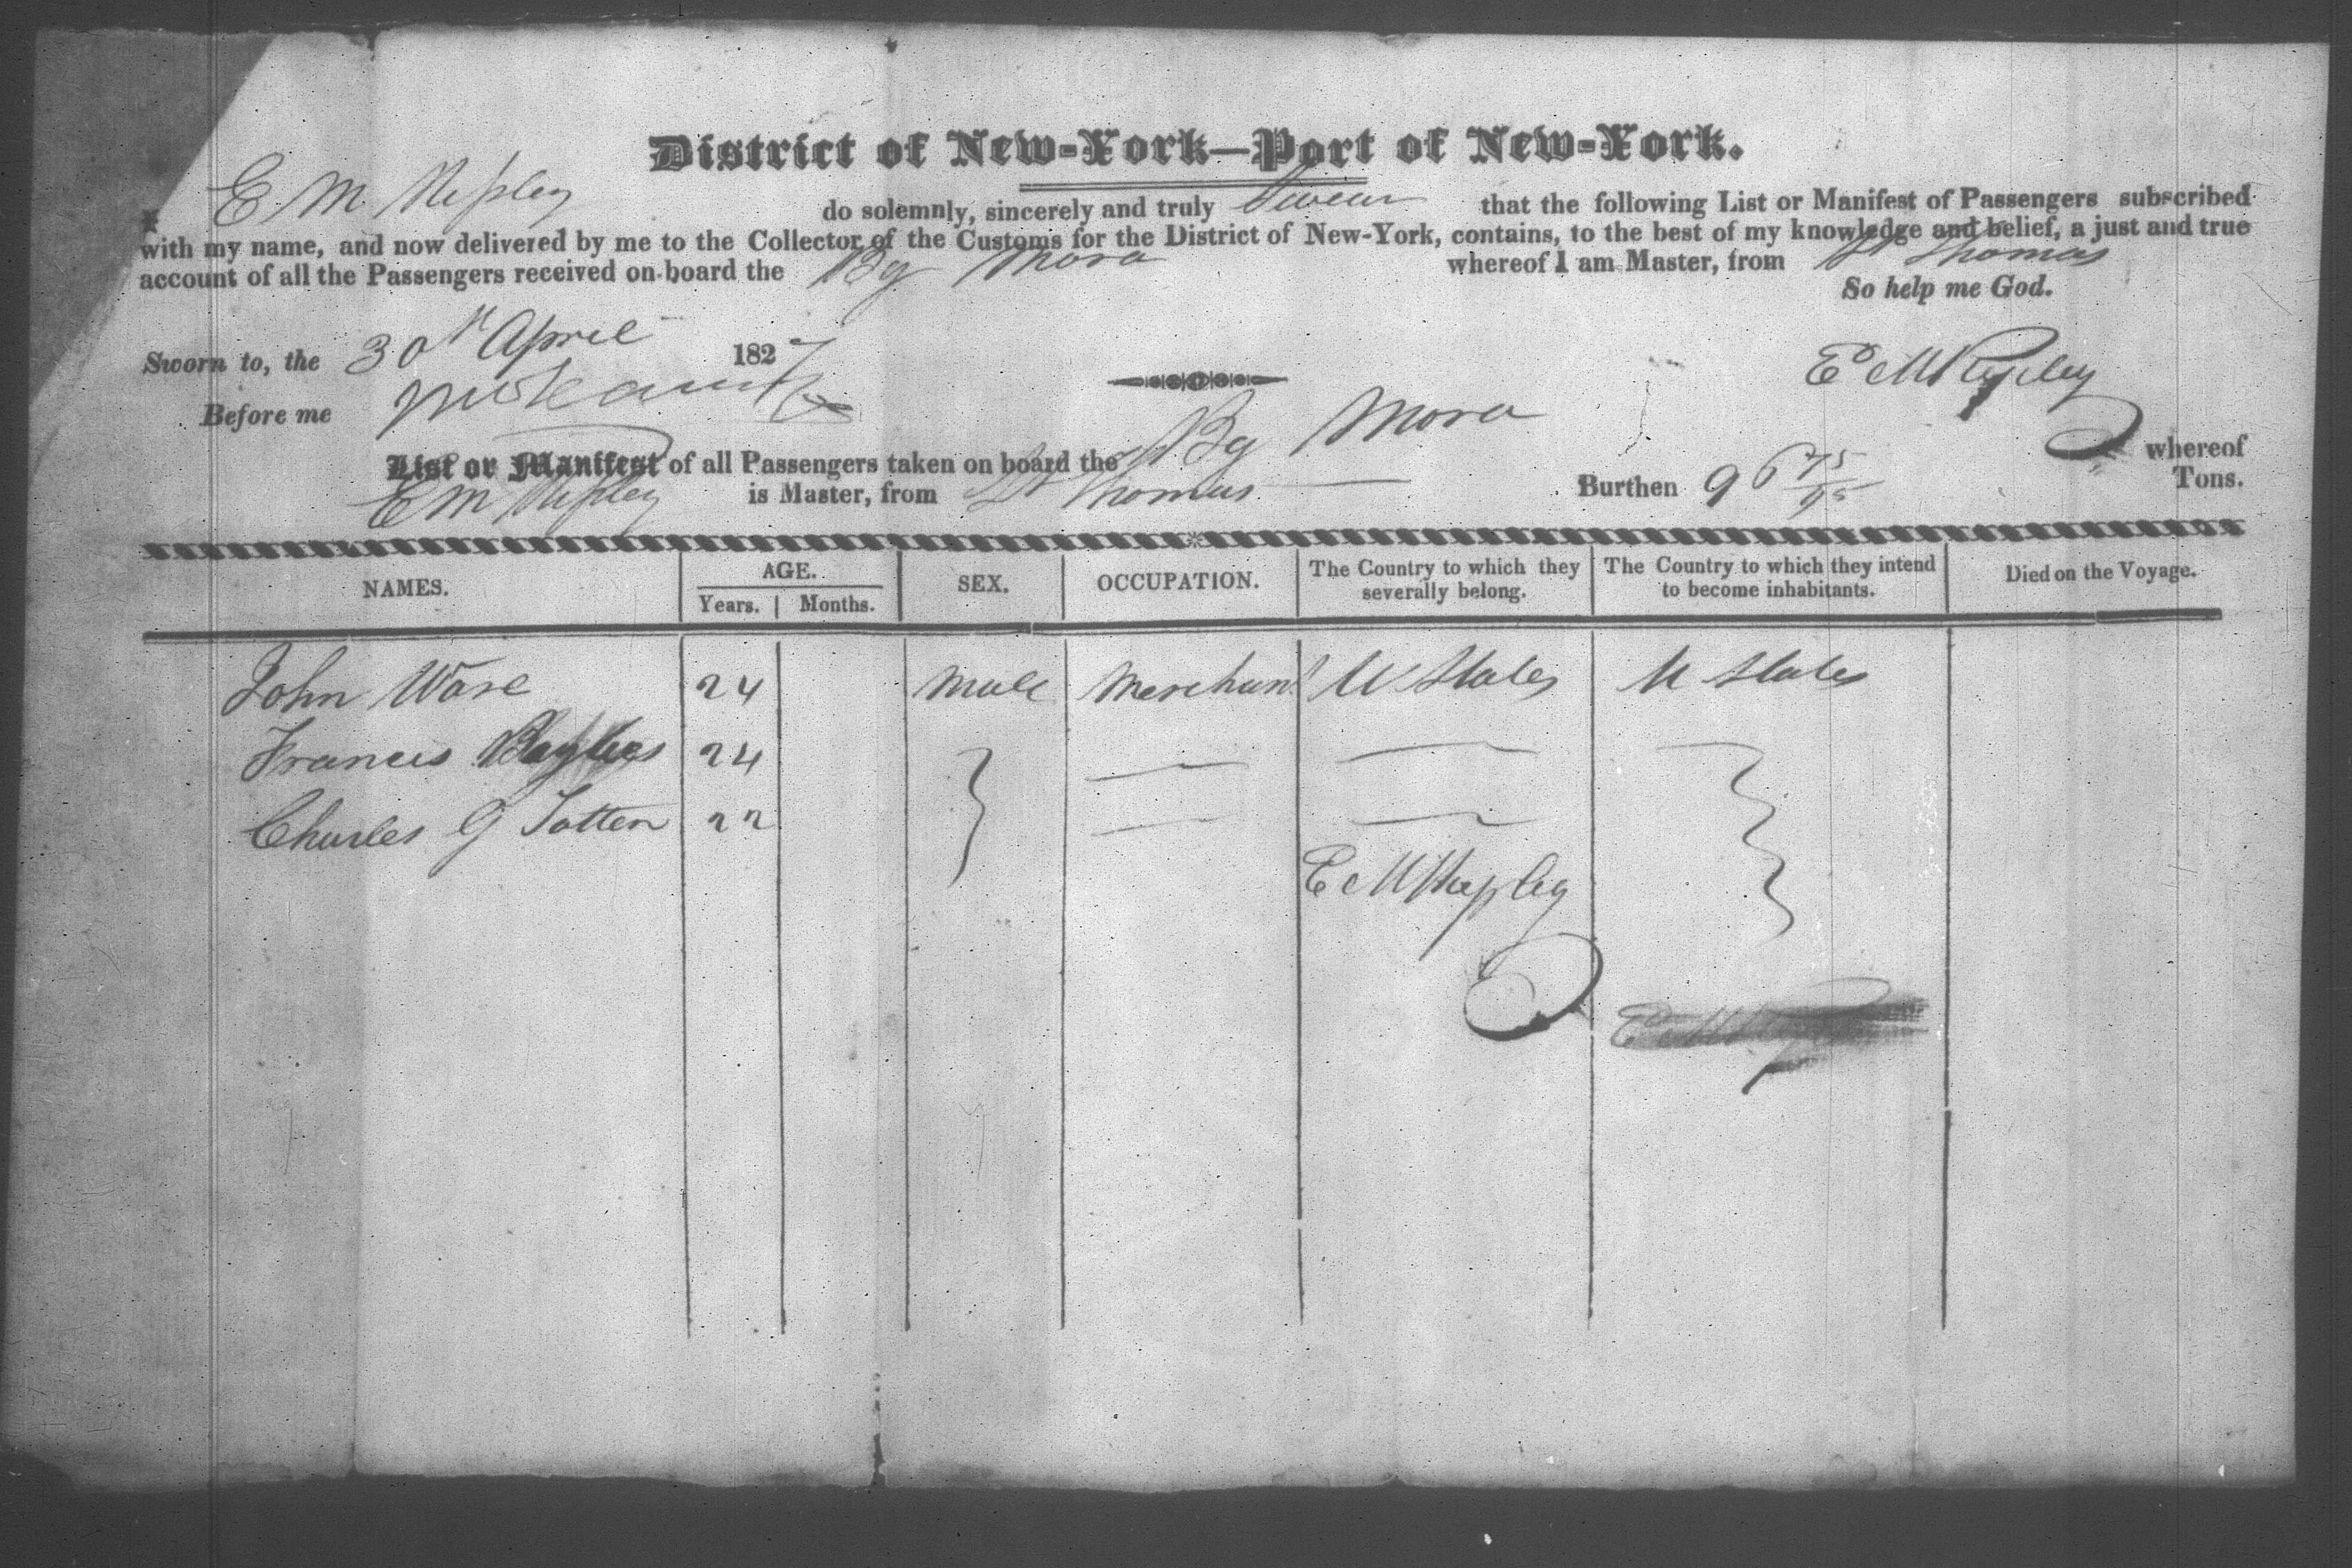 District of New-York—Port of New-York.
I E M Ripley do solemnly, sincerely and truly Swear that the following List or Manifest of Passengers subscribed
with my name, and now delivered by me to the Collector of the Customs for the District of New-York, contains, to the best of my knowledge and belief, a just and true
account of all the Passengers received on board the Bg Mora whereof I am Master, from St Thomas
So help me God.
Sworn to, the 30th April 1827
E M Ripley
Before me
List or Manifest of all Passengers taken on board the Bg Mora whereof
E M Ripley is Master, from St Thomas Burthen 96 75/95 Tons.
NAMES. AGE. SEX. OCCUPATION. The Country to which they severally belong. The Country to which they intend to become inhabitants. Died on the Voyage.
Years. Months.
John Ware 24 Male Merchant U States U States
Francis 24
Charles G Totten 22
E M Ripley